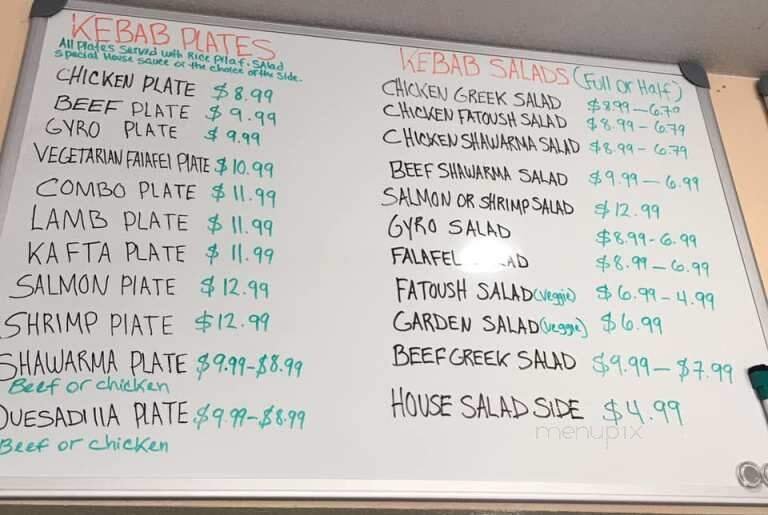 KEBAB PLATES
All Plates Served with Rice Pilaf. SAlad
special House sauce or the choice of the Side.
CHICKEN PLATE $8.99
BEEF PLATE $9.99
GYRO PLATE $9.99
VEGETARIAN FAlAFEl PlATE $10.99
COMBO PLATE $11.99
LAMB PLATE $11.99
KAFTA PLATE $11.99
SALMON PlATE $12.99
SHRIMP PlATE $12.99
SHAWARMA PLATE $9.99-$8.99
Beef or chicken
QUESADIllA PLATE $9.99-$8.99
Beef or chicken
KEBAB SALADS (Full Or Half)
CHICKEN GREEK SALAD $8.99-6.79
CHICKEN FATOUSH SALAD $8.99-6.79
CHICKEN SHAWARMA SALAD $8.99-6.79
BEEF SHAWARMA SALAD $9.99-6.99
SALMON OR SHRIMP SALAD $12.99
GYRO SALAD $8.99-6.99
FALAFEL $8.99-6.99
FATOUSH SALAD (veggie) $6.99-4.99
GARDEN SALAD (veggie) $6.99
BEEF GREEK SALAD $9.99-$7.99
HOUSE SALAD SIDE $4.99
menupix